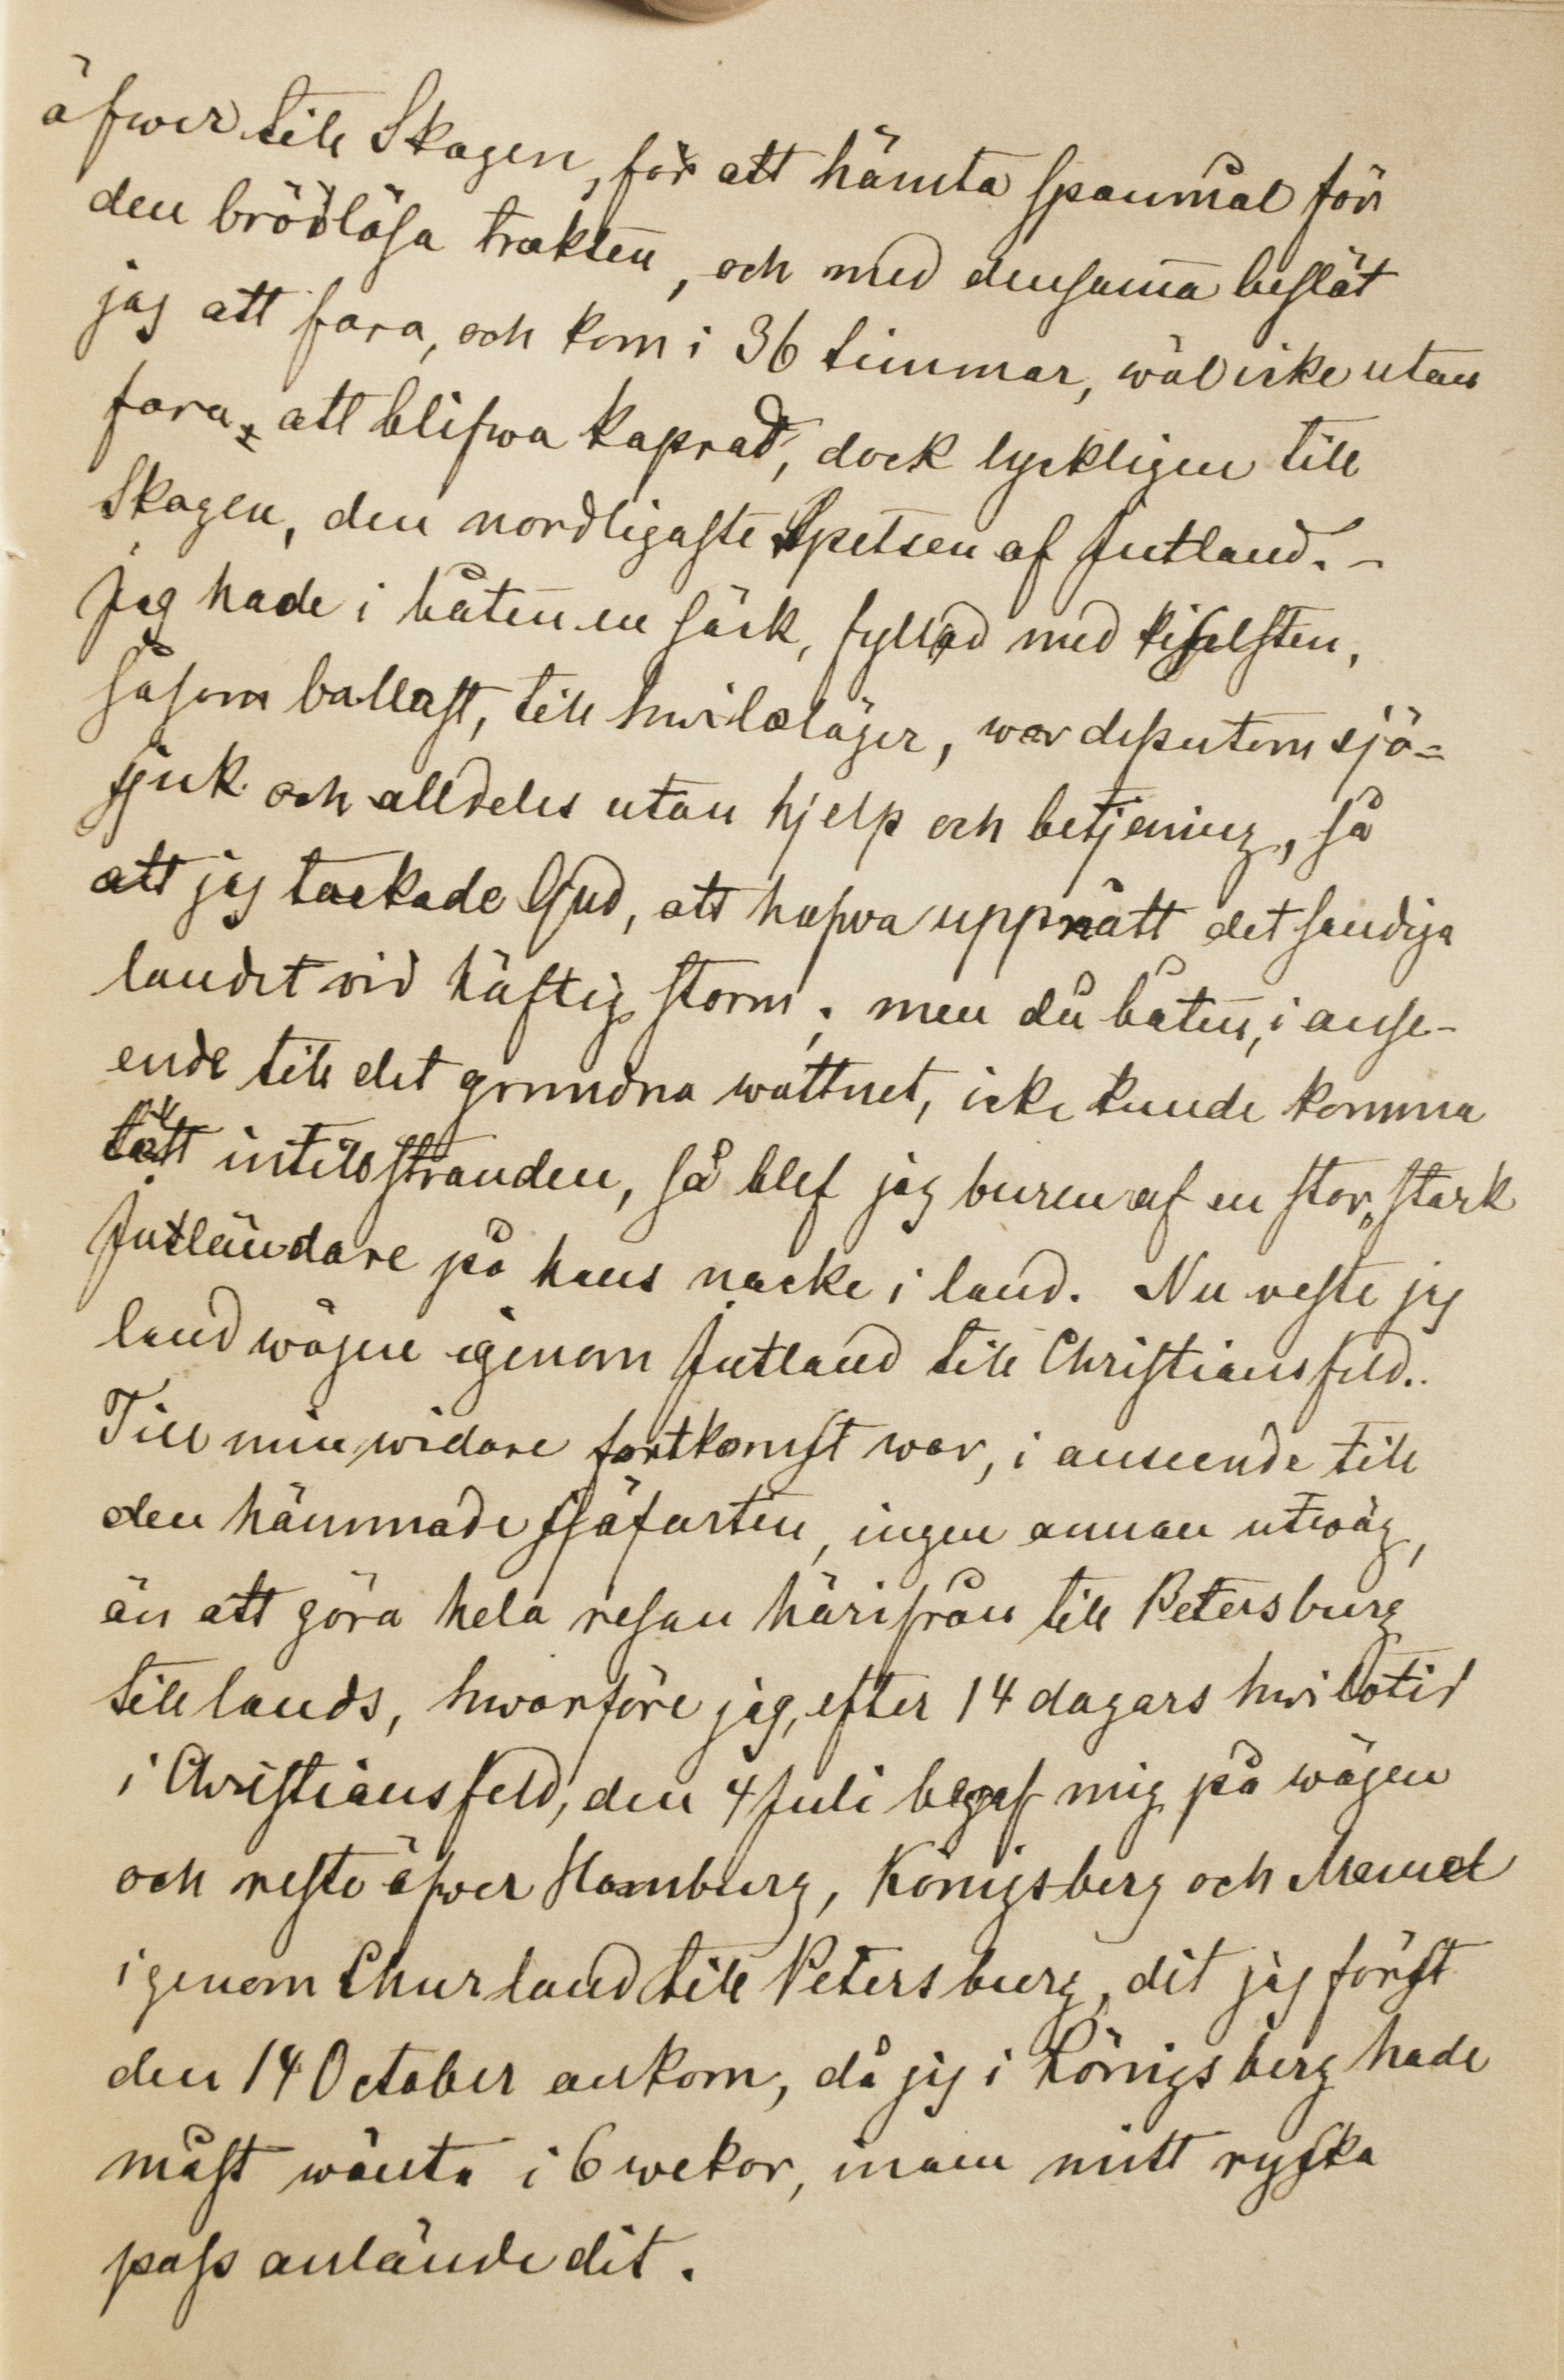 öfwer till Skagen, för att hämta spanmål för
den brödlösa trakten, och med densamma beslöt
jag att fara, och kom i 36 timmar, wäl icke utan
fara, att blifwa kaprad, dock lyckligen till
Skagen, den nordligaste Spetsen af Jutland. –
Jag hade i båten en säck, fylld med kiselsten,
såsom ballast, till hwiloläger, war dessutom sjö=
sjuk och alldeles utan hjelp och betjening, så
att jag tackade Gud, att hafwa uppnått det sandiga
landet vid häftig storm; men då båten, i anse-
ende till det grundna wattnet, icke kunde komma
tätt intill stranden, så blef jag buren af en stor, stark
Jutländare på hans nacke i land. Nu reste jag
landwägen igenom Jutland till Christiansfeld.
Till min widare fortkomst war, i anseende till
den hämmade sjöfarten, ingen annan utwäg,
än att göra hela resan härifrån till Petersburg
till lands, hwarföre jag, efter 14 dagars hwilotid
i Christiansfeld, den 4 Juli begaf mig på wägen
och reste öfwer Hamburg, Königsberg och Memel
igenom Churland till Petersburg, dit jag först
den 14 October ankom, då jag i Königsberg hade
måst wänta i 6 wekor, innan mitt ryska
pass anlände dit.